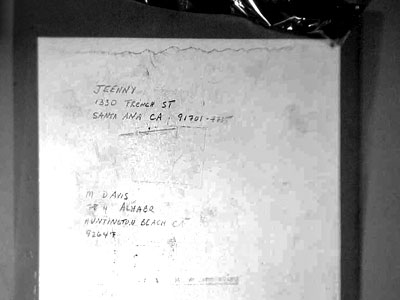 JEENNY
1330 FRENCH ST
SANTA ANA CA. 91701-
M DAVIS
HUNTINGTON BEACH CA
92647